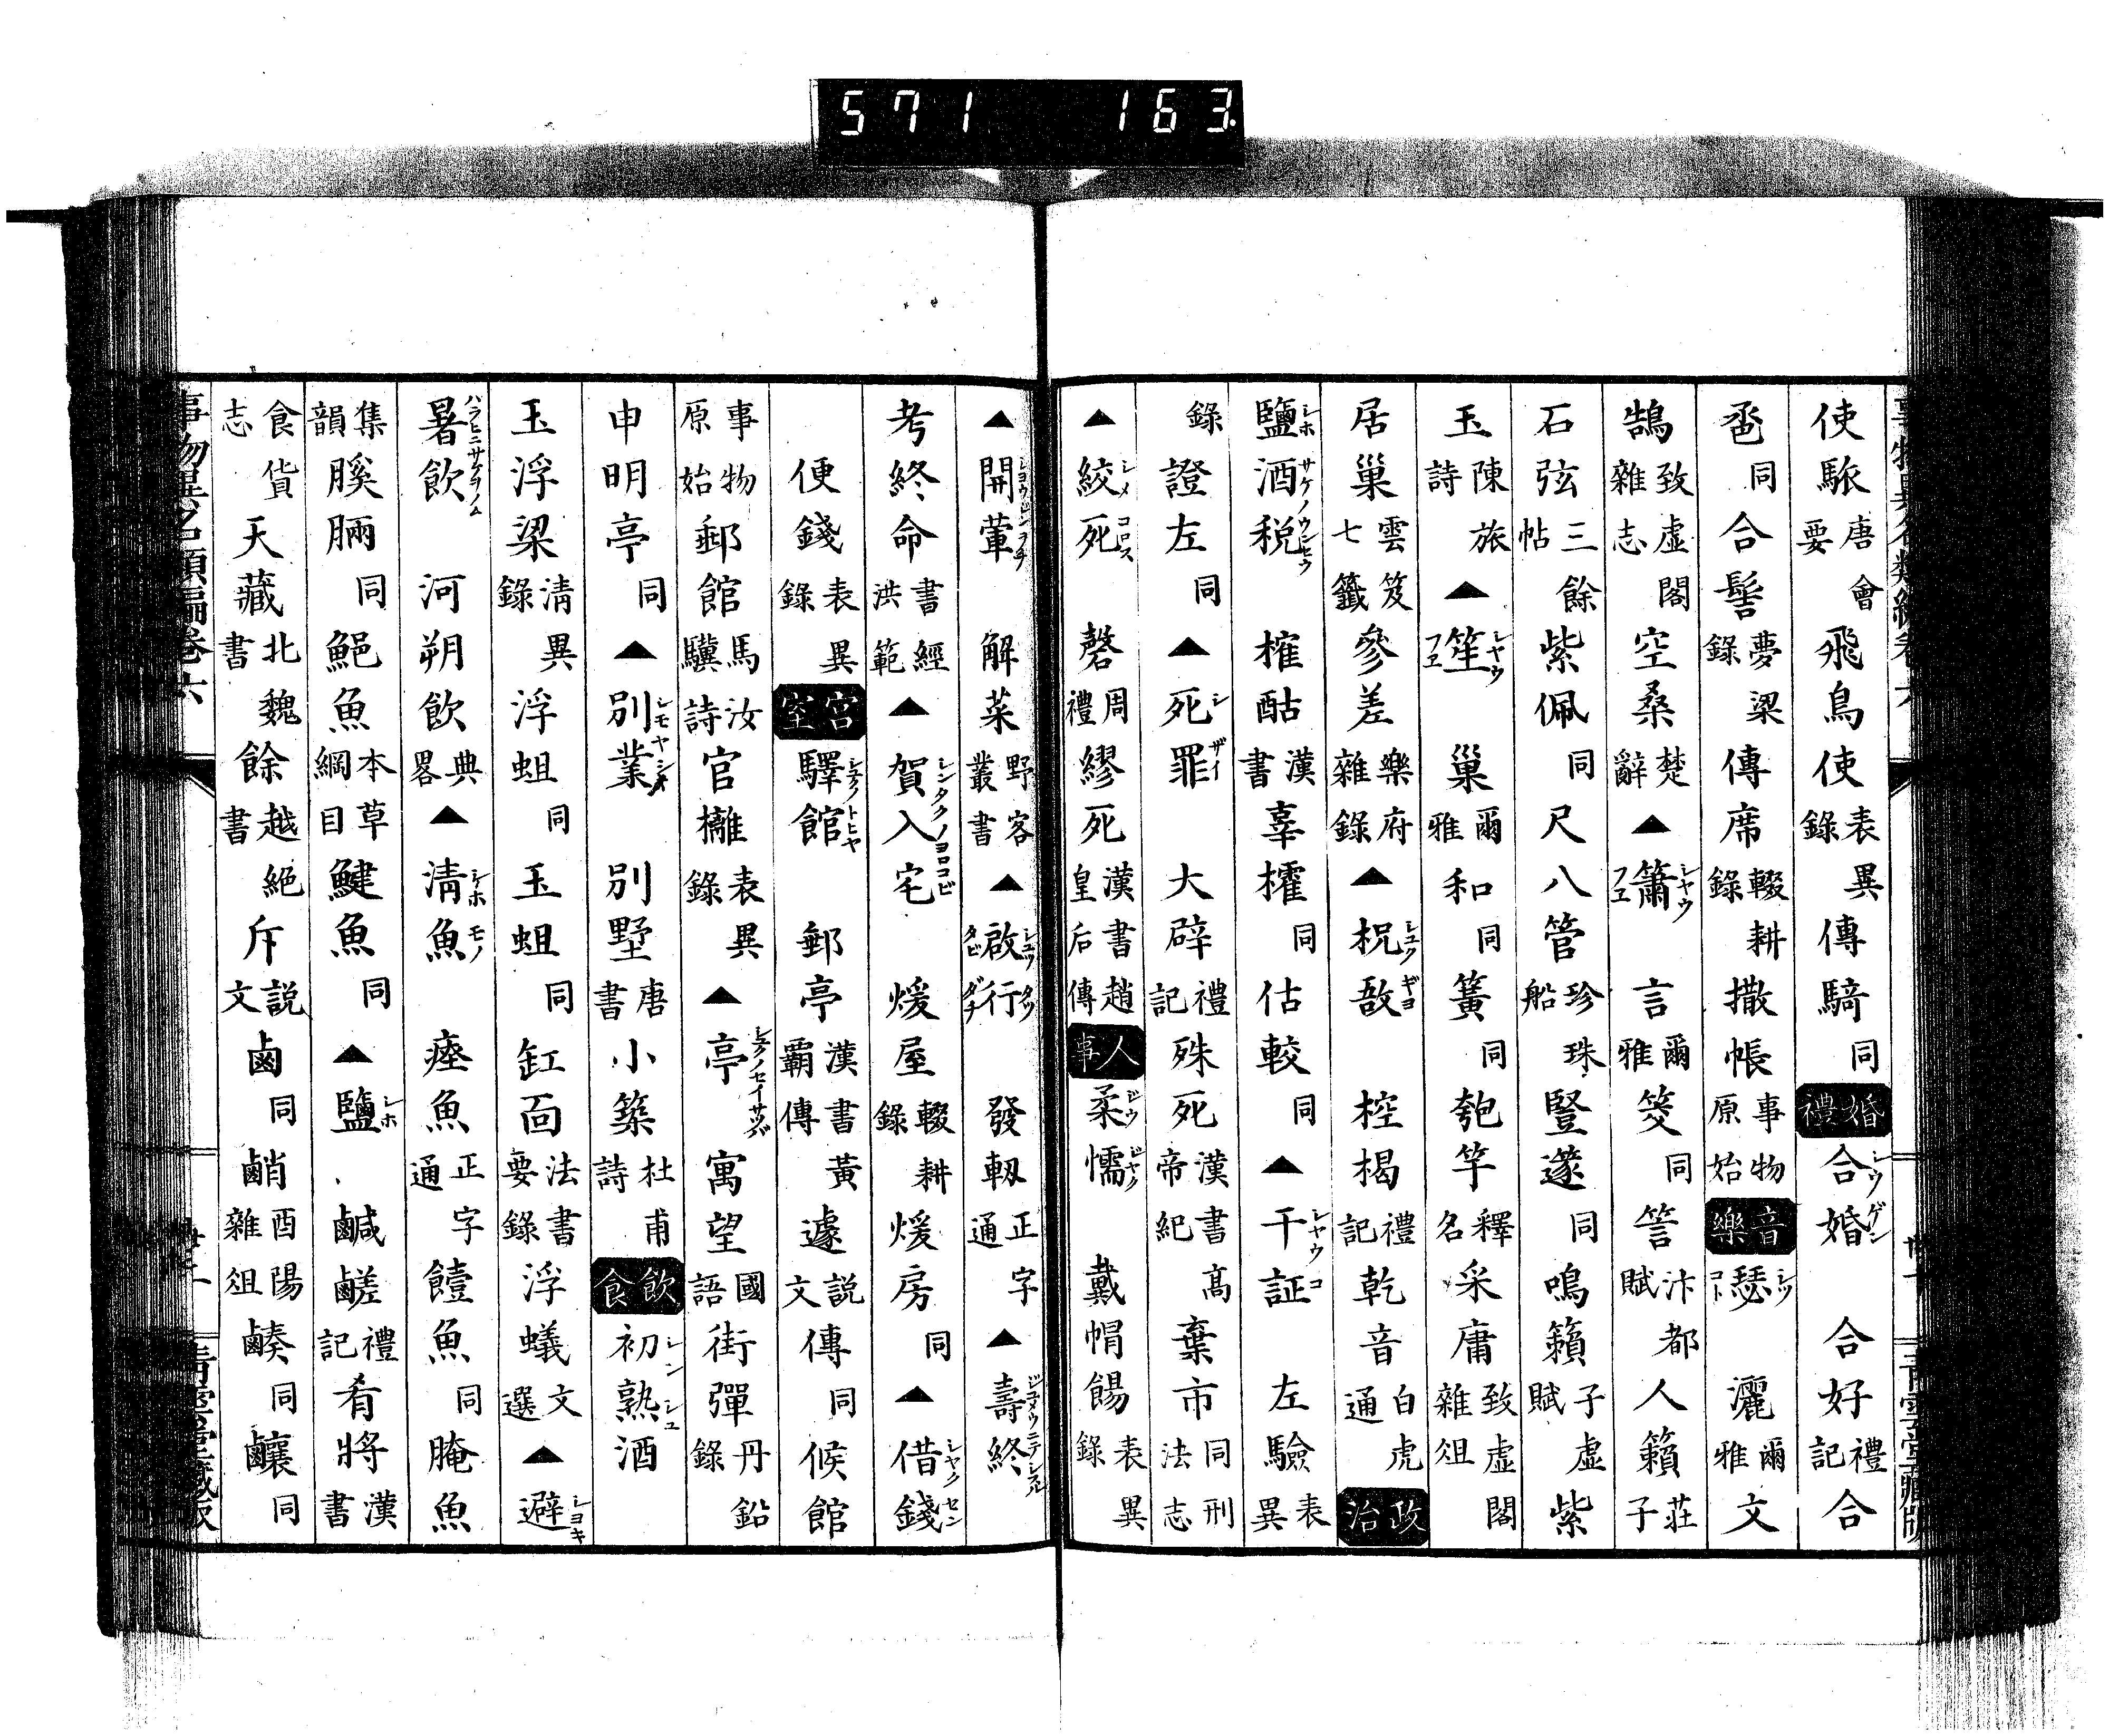 571 163.
使駭唐會要飛鳥使表異錄傳騎同婚禮合婚シウゲン合好禮記合
巹同合髻夢梁錄傳席輟耕錄撒帳事物原始音樂瑟シツコト灑爾雅文
鵠致虛閣雜志空桑楚辭▲簫シヤウフエ言爾雅筊同筶汴都賦人籟莊子
石弦三餘帖紫佩同尺八管珍珠船豎邃同鳴籟子虛賦紫
玉陳旅詩▲笙シヤウフエ巢爾雅和同簧同匏竽釋名采庸致虛閣雜俎
居巢雲笈七籤參差樂府雜錄▲柷シユク敔ギヨ椌楬禮記乾音白虎通政治
鹽シホ酒サケノウンセウ税榷酤漢書辜榷同估較同▲干シヤウコ証左驗表異
錄證左同▲死シ罪ザイ大辟禮記殊死漢書高帝紀棄市同刑法志
▲絞シメ死コロス磬周禮繆死漢書趙皇后傳人事柔ジウ懦ジヤク戴帽餳表異錄
▲開葷解菜野客叢書▲啟行發軔正字通▲壽終
考終命書經洪範▲賀入宅煖屋輟耕錄煖房同▲借シヤク錢セン
便錢表異錄宮室驛館郵亭漢書黃霸傳遽説文傳同候館
事物原始郵館馬汝驥詩官櫳表異錄▲亭寓望國語街彈丹鉛錄
申明亭同▲別業シモヤシキ別墅唐書小築杜甫詩飲食初熟酒シンシユ
玉浮梁清異錄浮蛆同玉蛆同缸面法書要錄浮蟻文選▲避シヨキ
暑飲ハラヒニサケノム河朔飲典畧▲淸魚シホモノ瘞魚正字通饐魚同腌魚
集韻膎脼同鮑魚本草綱目鰎魚同▲鹽シホ鹹鹺禮記肴將漢書
食貨志天藏北魏書餘越絕書斥説文鹵同䴛酉陽雜俎䴝同䴐同
事物異名類編卷六 青雲堂藏版